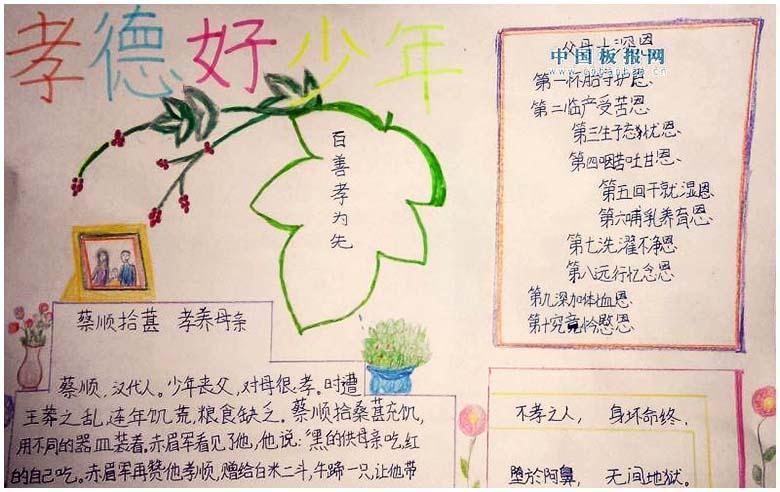 孝德好少年
百善孝为先
父母十深恩
中国板报网
第一怀胎守护恩
第二临产受苦恩
第三生子忘忧恩
第四咽苦吐甘恩
第五回干就湿恩
第六哺乳养育恩
第七洗濯不净恩
第八远行忆念恩
第九深加体恤恩
第十究竟怜愍恩
蔡顺拾葚 孝养母亲
蔡顺，汉代人。少年丧父，对母很孝。时遭
王莽之乱，连年饥荒，粮食缺乏。蔡顺拾桑葚充饥，
用不同的器皿装着。赤眉军看见了他，他说：“黑的供母亲吃，红
的自己吃。赤眉军再赞他孝顺，赠给白米二斗，牛蹄一只，让他带
不孝之人， 身坏命终，
堕於阿鼻， 无间地狱。